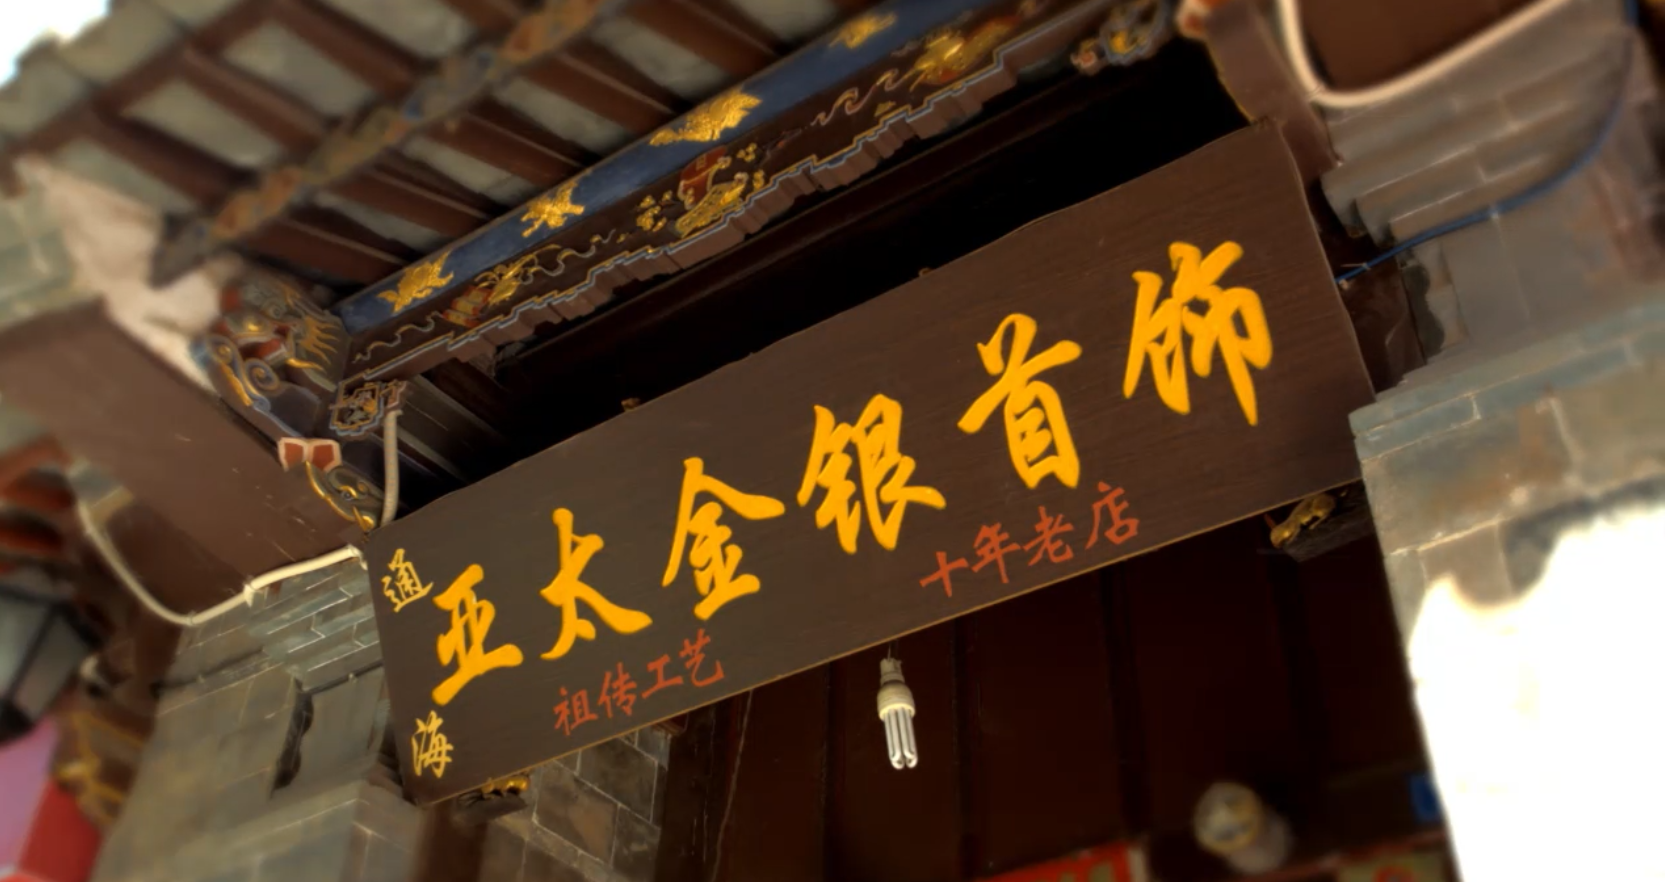 通海
亚太金银首饰
祖传工艺
十年老店